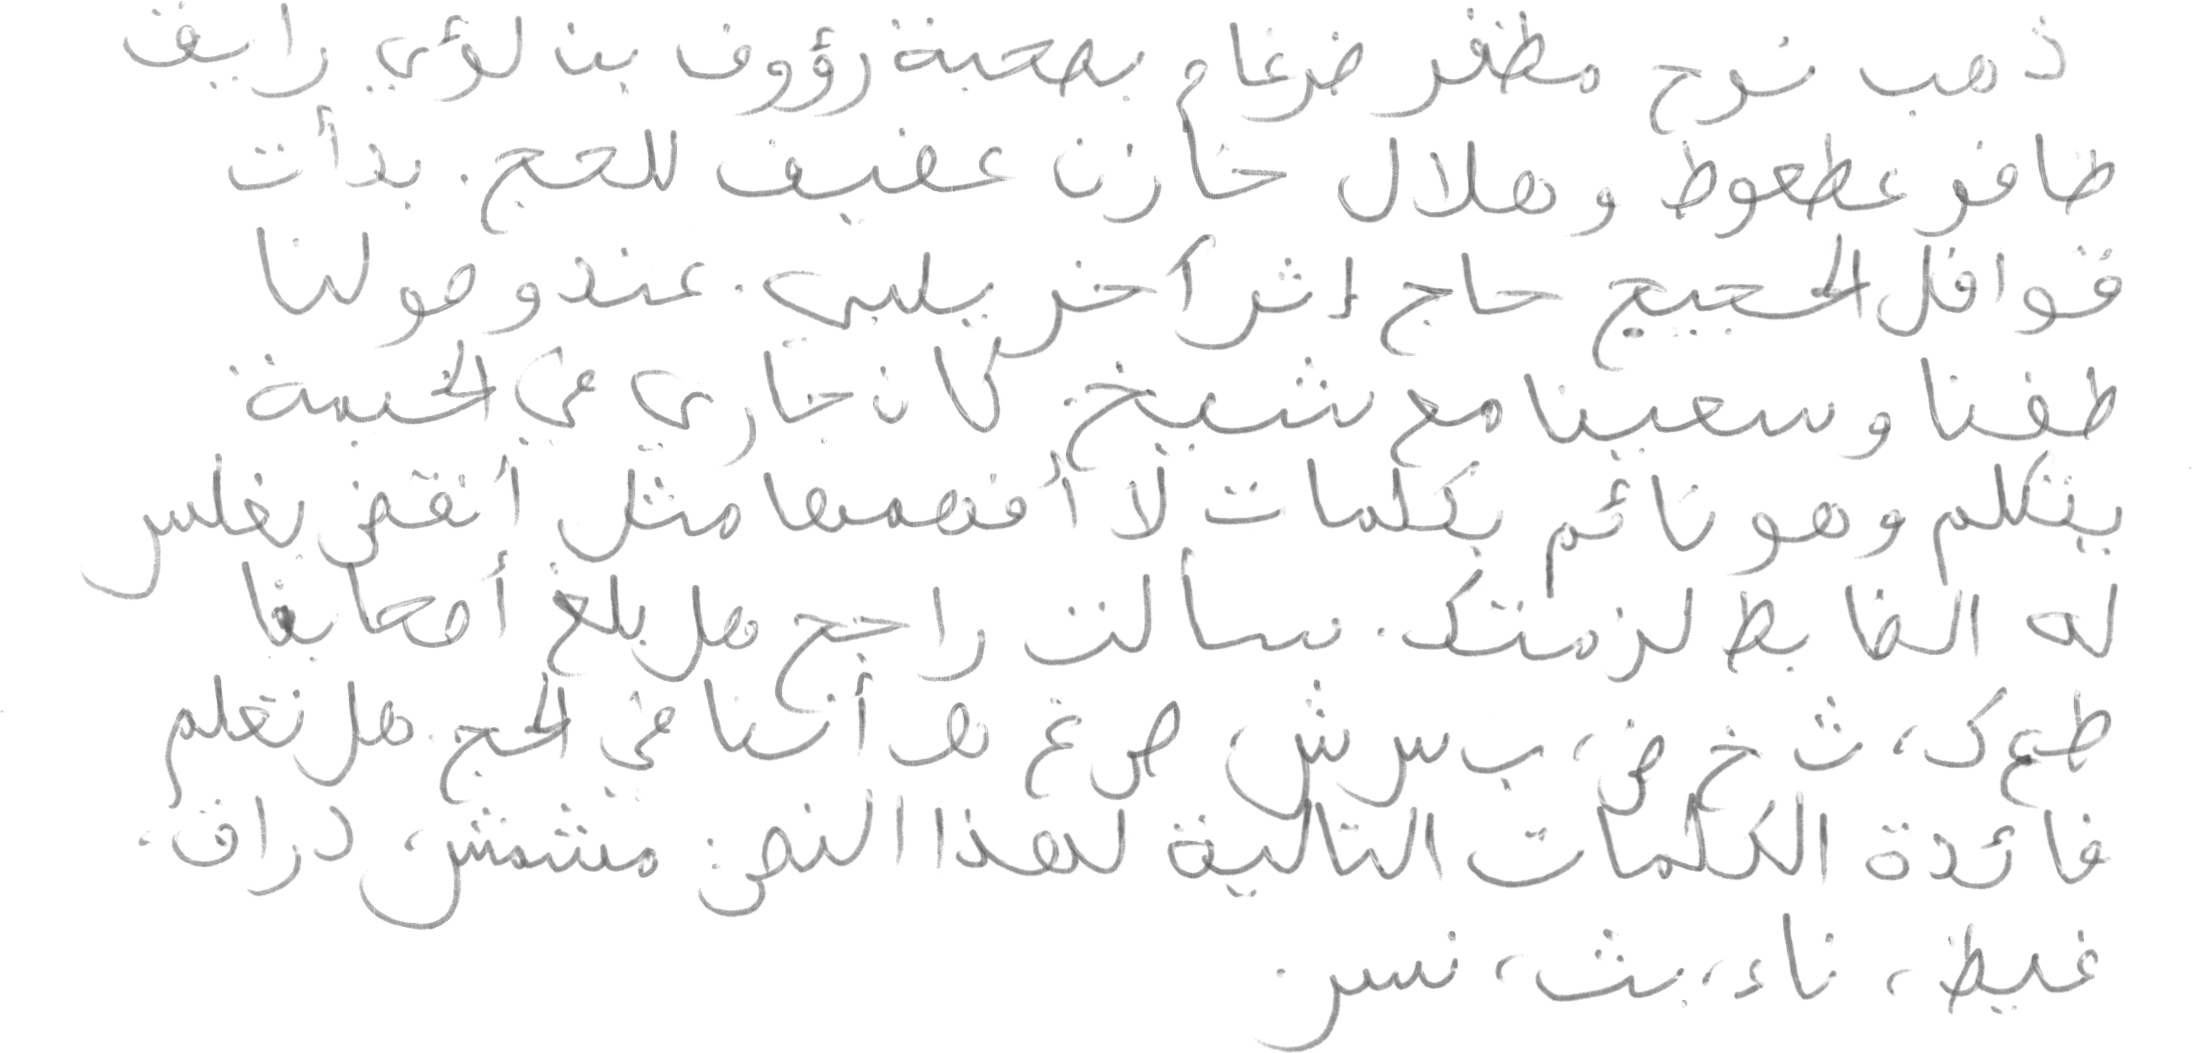 ذهب نوح مظفر ضرغام بصحبة رؤوف بن لؤي رايق
ظافر عطعوط وهلال خازن عفيف للحج. بدأت
قوافل الحجيج حاج إثر آخر يلبى. عند وصولنا
طفنا وسعينا مع شيخ. كان جارى في الخيمة
يتكلم وهو نائم بكلمات لا أفهمها مثل أنقض بغلس
له الضابط لزمتك. سألت راجح هل بلغ أصحابنا
ط ع ك، ث خ ض، ب س ش ص غ ه أننا في الحج. هل تعلم
فائدة الكلمات التالية لهذا النص: مشمش، دراق،
غيظ، ناء، بث، نسر.